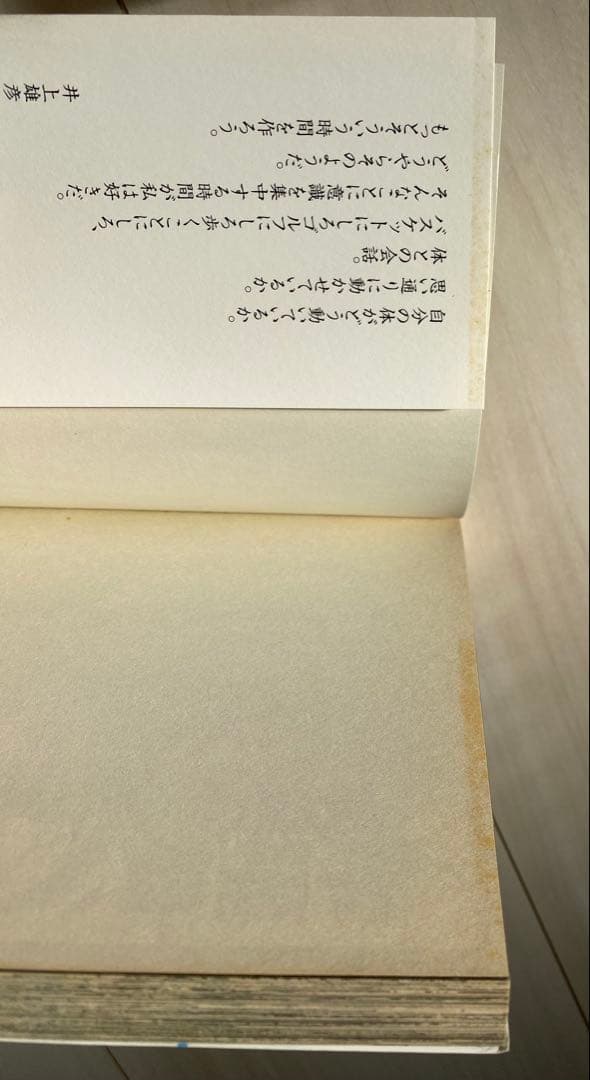 自分の体がどう動いているか。
思い通りに動かせているか。
体との会話。
バスケットにしろゴルフにしろ歩くことにしろ、
そんなことに意識を集中する時間が私は好きだ。
どうやらそのようだ。
もっとそういう時間を作ろう。
井上雄彦